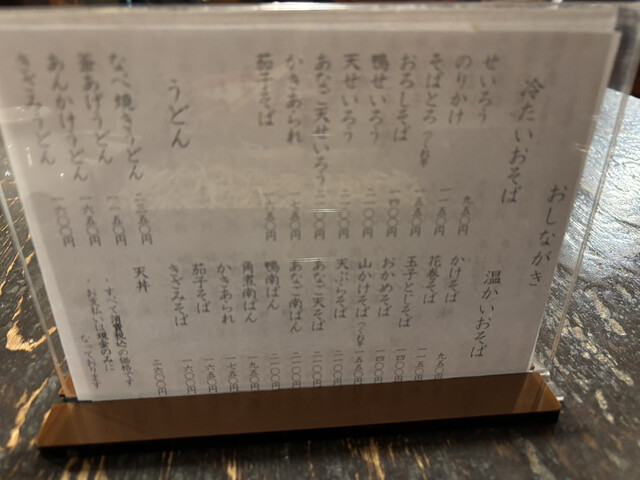 おしながき
冷たいおそば
せいろう 九五〇円
のりかけ 一一五〇円
そばとろ（つくね芋） 一五五〇円
おろしそば 一四〇〇円
鴨せいろう 二一〇〇円
天せいろう 二一〇〇円
あなご天せいろう 二一〇〇円
かきあられ 一七五〇円
茄子そば 一六五〇円
温かいおそば
かけそば 九五〇円
花巻そば 一一五〇円
玉子とじそば 一四〇〇円
おかめそば 一四〇〇円
山かけそば 一五五〇円
天ぷらそば 二一〇〇円
あなご天そば 二一〇〇円
あなご南ばん 二一〇〇円
鴨南ばん 二一〇〇円
角煮南ばん 一九五〇円
かきあられ 一七五〇円
茄子そば 一六五〇円
きざみそば 一六〇〇円
うどん
なべ焼きうどん 二三五〇円
釜あげうどん 一一五〇円
あんかけうどん 一六五〇円
きざみうどん 一六〇〇円
天丼 二六〇〇円
、すべて消費税込の価格です
、お支払いは現金のみに
なっております